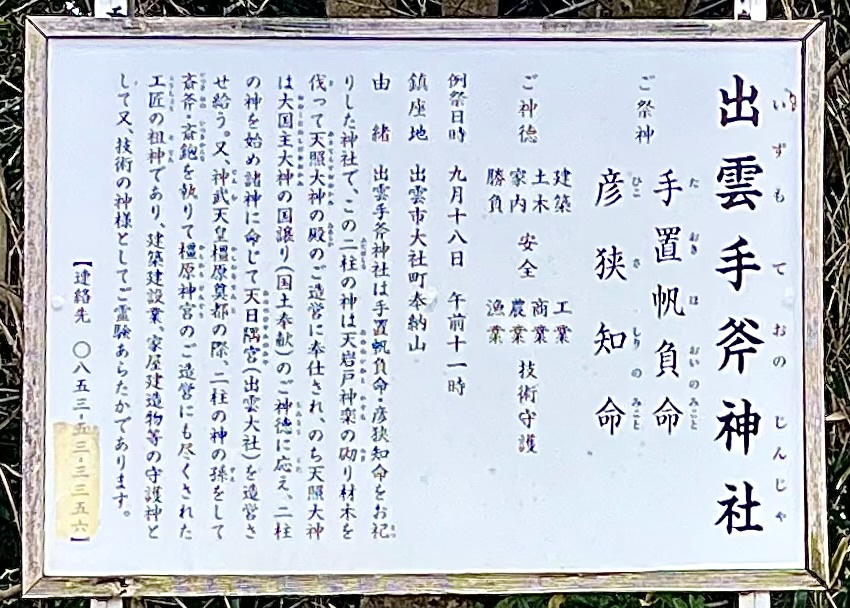 出雲手斧神社
ご祭神 手置帆負命
彦狭知命
ご神徳 建築 土木 家内 勝負 安全 工業 商業 農業 漁業 技術守護
例祭日時 九月十八日 午前十一時
鎮座地 出雲市大社町奉納山
由緒 出雲手斧神社は手置帆負命・彦狭知命をお祀
りした神社で、この二柱の神は天岩戸神楽の砌り材木を
伐って天照大神の殿のご造営に奉仕され、のち天照大神
は大国主大神の国譲り(国土奉献)のご神徳に応え、二柱
の神を始め諸神に命じて天日隅宮(出雲大社)を造営さ
せ給う。又、神武天皇橿原奠都の際、二柱の神の孫をして
斎斧・斎鉋を執りて橿原神宮のご造営にも尽くされた
工匠の祖神であり、建築建設業、家屋建造物等の守護神と
して又、技術の神様としてご霊験あらたかであります。
【連絡先 〇八五三・五三・三三五六】